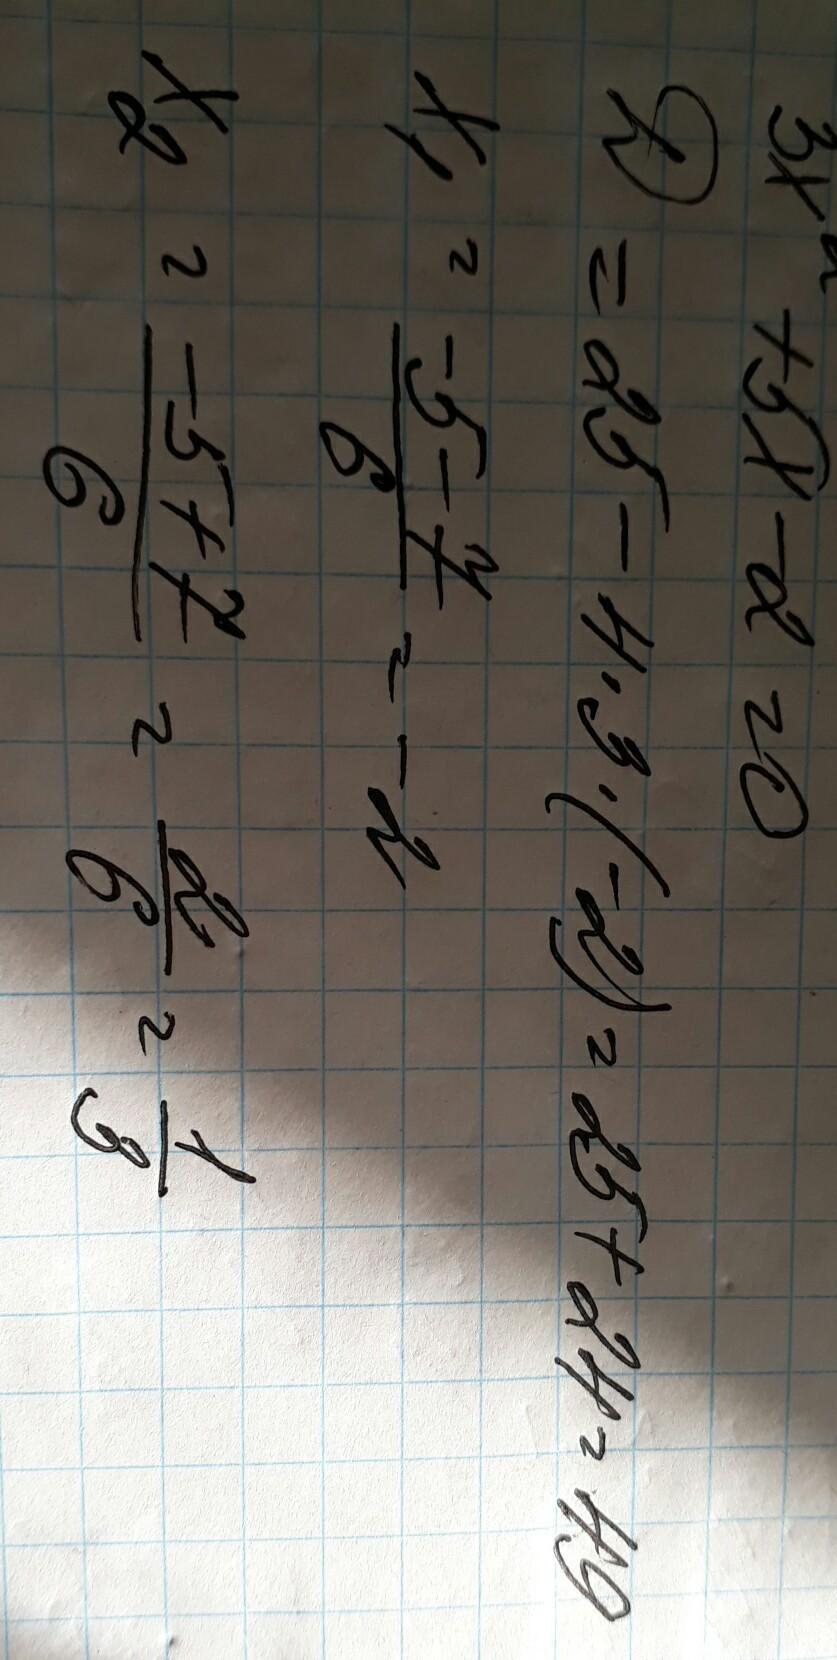 3x² + 5x - 2 = 0
D = 25 - 4·3·(-2) = 25 + 24 = 49
x₁ = (-5 - 7)/6 = -2
x₂ = (-5 + 7)/6 = 2/6 = 1/3